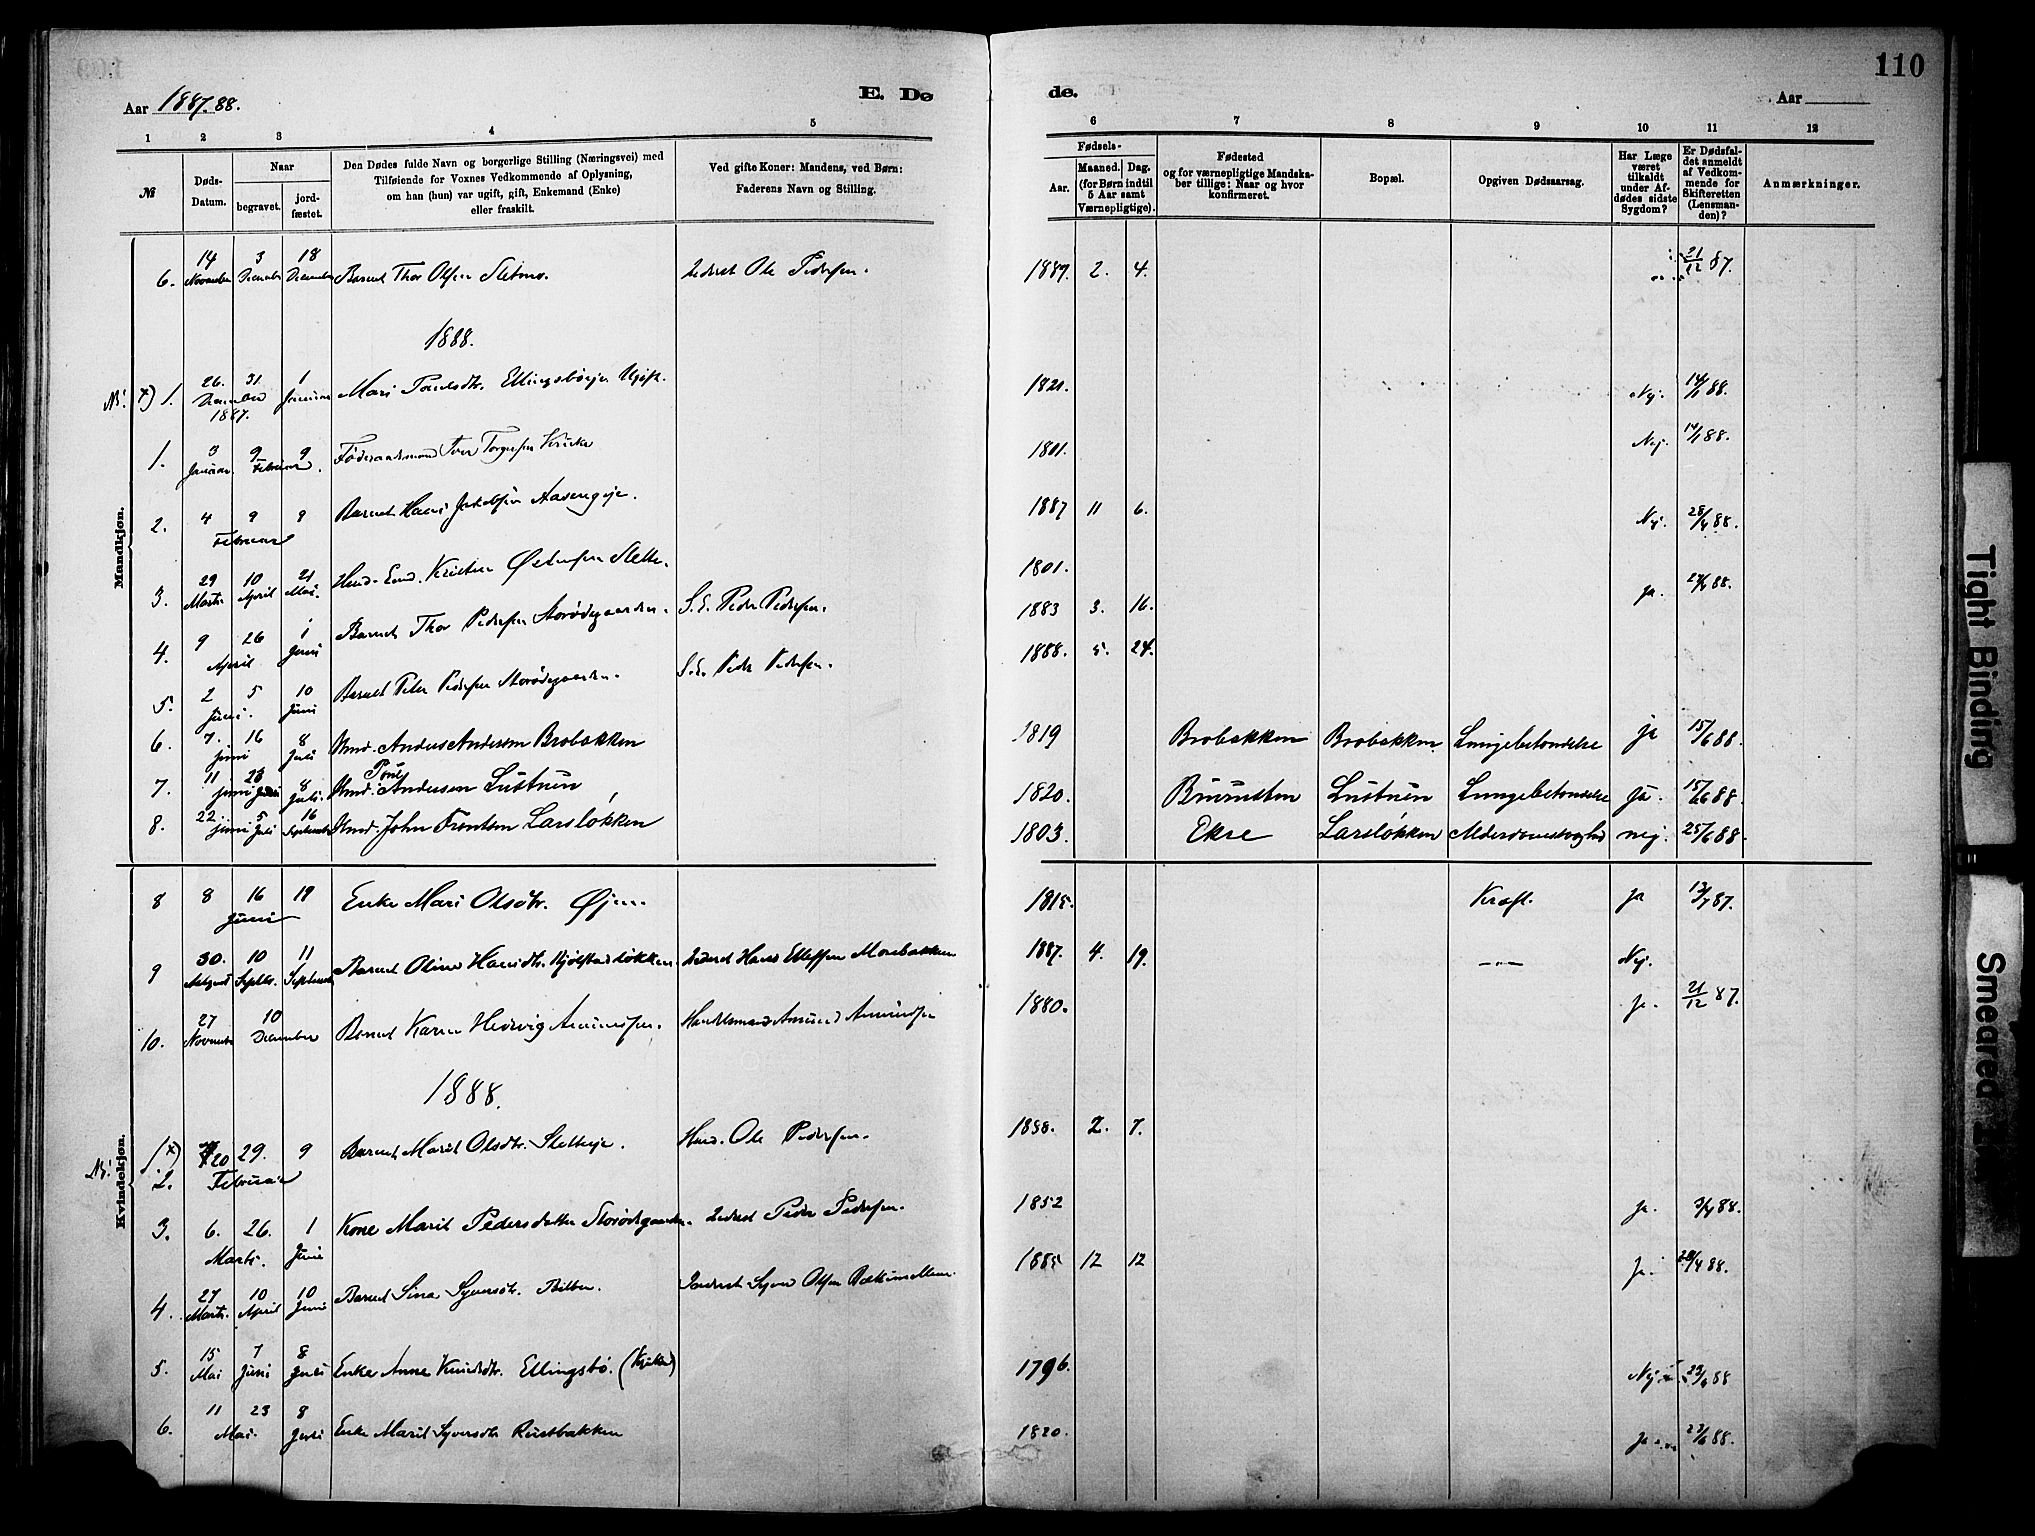 110
Aar 1887.88.
E. Dø
de.
Aar
1 2 3 4 5 6 7 8 9 10 11 12
№
Døds-
Datum.
Naar
begravet.
jord-
fæstet.
Den Dødes fulde Navn og borgerlige Stilling (Næringsvei) med
Tilføiende for Voxnes Vedkommende af Oplysning,
om han (hun) var ugift, gift, Enkemand (Enke)
eller fraskilt.
Ved gifte Koner: Mandens, ved Børn:
Faderens Navn og Stilling.
Fødsels-
Aar.
Maaned. Dag.
(for Børn indtil
5 Aar samt
Værnepligtige).
Fødested
og for værnepligtige Mandska-
ber tillige: Naar og hvor
konfirmeret.
Bopæl.
Opgiven Dødsaarsag.
Har Læge
været
tilkaldt
under Af-
dødes sidste
Sygdom?
Er Dødsfal-
det anmeldt
af Vedkom-
mende for
Skifteretten
(Lensman-
den)?
Anmærkninger.
Mandkjøn.
6. 14 November 3 December 18 December Barnet Thor Olsen Sletmo. Inderst Ole Pedersen. 1887. 2. 4. 21/12 87.
1888.
x) 1. 26. 31. December 1887. 1 Januar Mari Ellingsbøeje Ugift. 1821. Nej. 14/1 88.
1. 3 Januar 9 9 Februar. Føderaadsmand Iver Torgersen 1801. Nej. 14/1 88.
2. 4 9 9 Februar Barnet Hans Jakobsen Aasengeje. 1887 11 6. Nej. 28/4 88.
3. 29 Marts 10 April 21 Mai. Kristen Østensen Slette. 1801. ja. 27/4 88.
4. 9 26 April 1 Juni Barnet Thor Pedersen Storødegaarden. S.E. Peder Pedersen. 1883 3. 16.
5. 2 5 Juni. 10 Juni Barnet Peter Pedersen Storødegaarden. S.E. Peder Pedersen. 1888. 5. 24.
6. 7. 16 juni 8 Juli Anders Andersen Brobakken 1819 Brobakken Brobakken Lungebetændelse ja 15/6 88.
7. 11 juni 23 8 Juli. Poul Andersen Lustuen 1820. Lustuen Lungebetændelse ja. 15/6 88.
8. 22. juni 5 Juli 16 September John Larsløkken 1803. Ekre Larsløkken Alderdomssvaghed nej. 25/6 88.
Kvindekjøn.
8 8 16 19 Juni Enke Mari Olsdtr. Øjen. 1815. Kræft. ja 13/7 87.
9 30. August 10 Septbr. 11 September Barnet Oline Hansdtr. Inderst Hans Ellefsen Morebakken 1887. 4. 19. Nej.
10. 27 November 10 December Barnet Karen Hedvig Amundsen. Handelsmand Amund Amundsen 1880. ja. 21/12 87.
1888.
1.(x)
2. 20 29. 9 Februar Barnet Marit Olsdtr. Sletteeje. Ole Pedersen. 1888. 2. 7.
3. 6. 26. Marts. 1 Juni Kone Marit Pedersdatter Storødegaarden. Inderst Peder Pedersen. 1852 ja. 3/4 88.
4. 27 Marts. 10 April 10 Juni Barnet Sina Syversdtr. Inderst Syver Olsen 1885 12 12 ja. 28/4 88.
5. 15 Mai 7 Juni 8 Juli Enke Anne Knudsdtr. Ellingsbø. 1796. Nej. 23/6 88.
6. 11 23 Mai. 8 Juli Enke Marit Syversdtr Rustbakken 1820. Ja. 23/6 88.
Tight Binding
Smeared